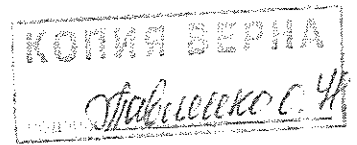 КОПИЯ ВЕРНА
Павленко С. Н